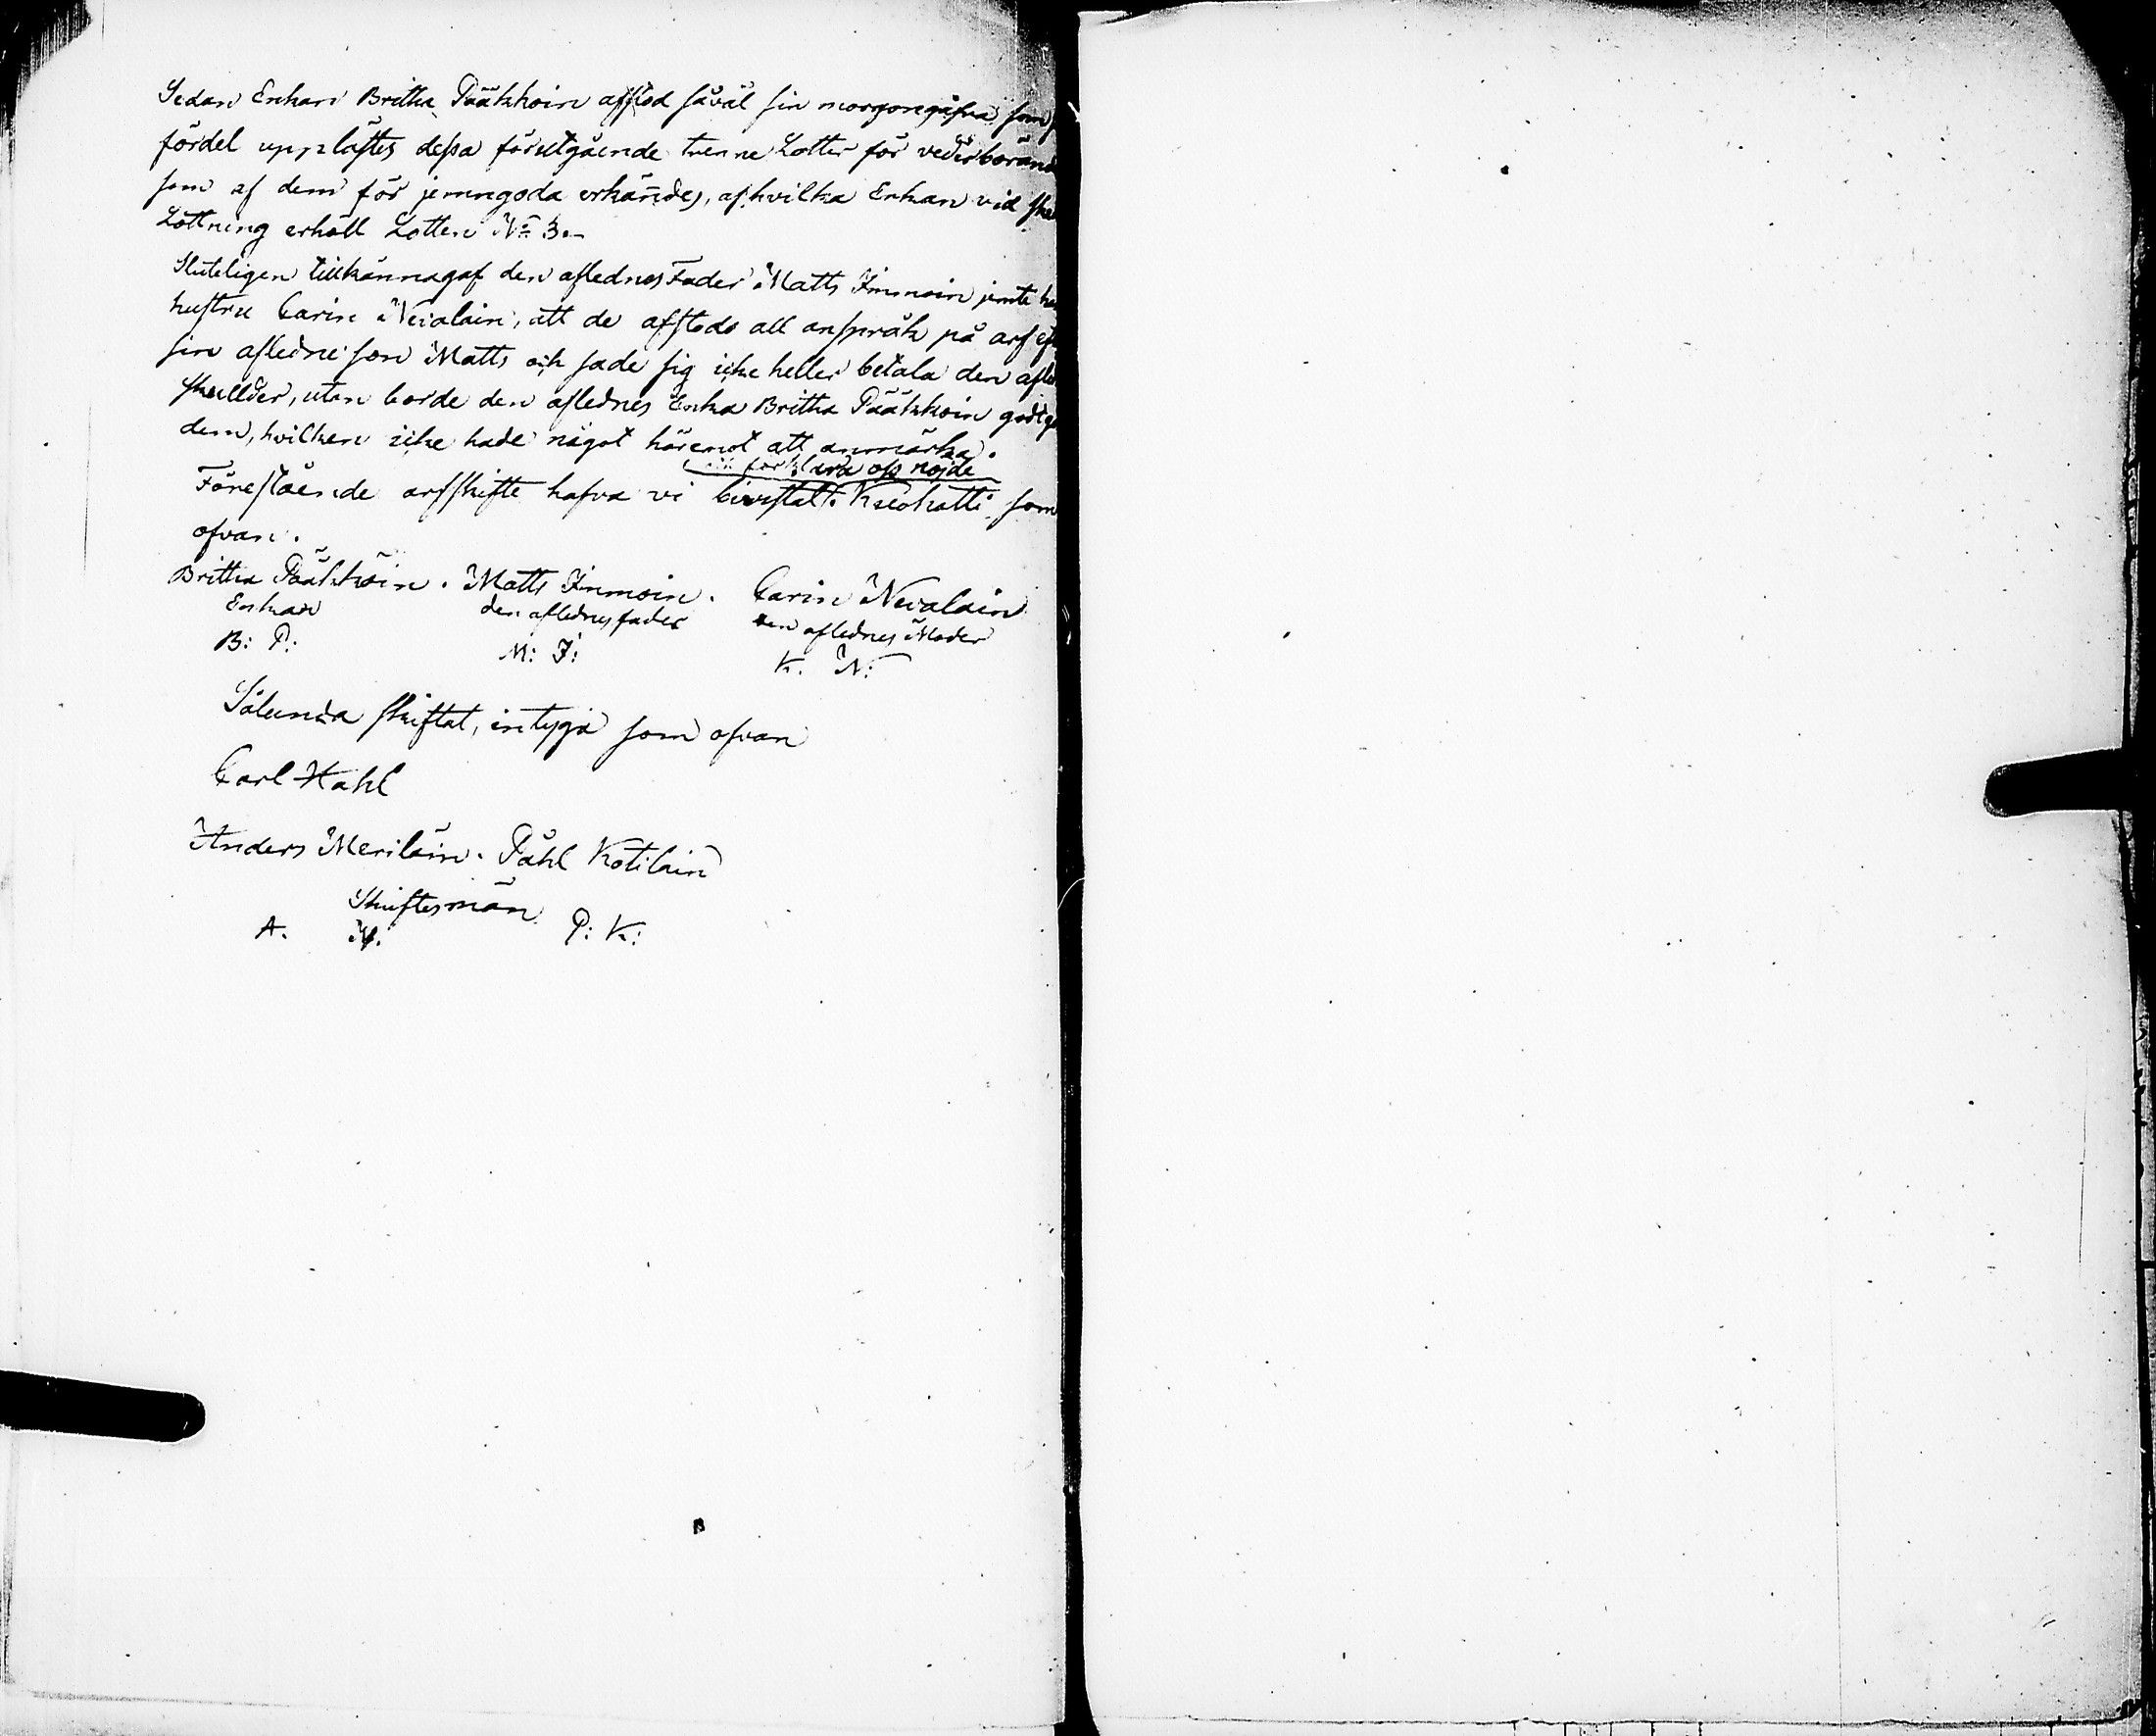 Sedan Enkan Britha Pääkkoin afstod såväl sin morgongåfva som
fördel upplästes dessa förutgående trenne Lotter för vederböran
som af dem för jemngoda erkändes, af hvilka Enkan vid ske
Lottning erhöll Lotten No 3.
Sluteligen tillkännagaf den aflednes Fader Matts Immoin jemte ha
hustru Carin Nevalain, att de afstodo all anspråk på arf eft
sin afledne son Matts och sade sig icke heller betala den afle
skullder, utan borde den aflednes Enka Britha Pääkkoin godtgö
dem, hvilken icke hade något häremot att anmärka.
och förklara oss nöjde
Föreståënde arfskifte hafva vi bivistat. Kseokatti som
ofvan.
Britha Pääkköin. Matts Immoin. Carin Nevalain
Enkan den aflednes fader den aflednes Moder
B: P: M: I: K. N:
Sålunda skiftat, intyga som ofvan
Carl Hahl
Anders Meriläin. Påhl Kotilain
Skiftesmän
A. M. P: K: